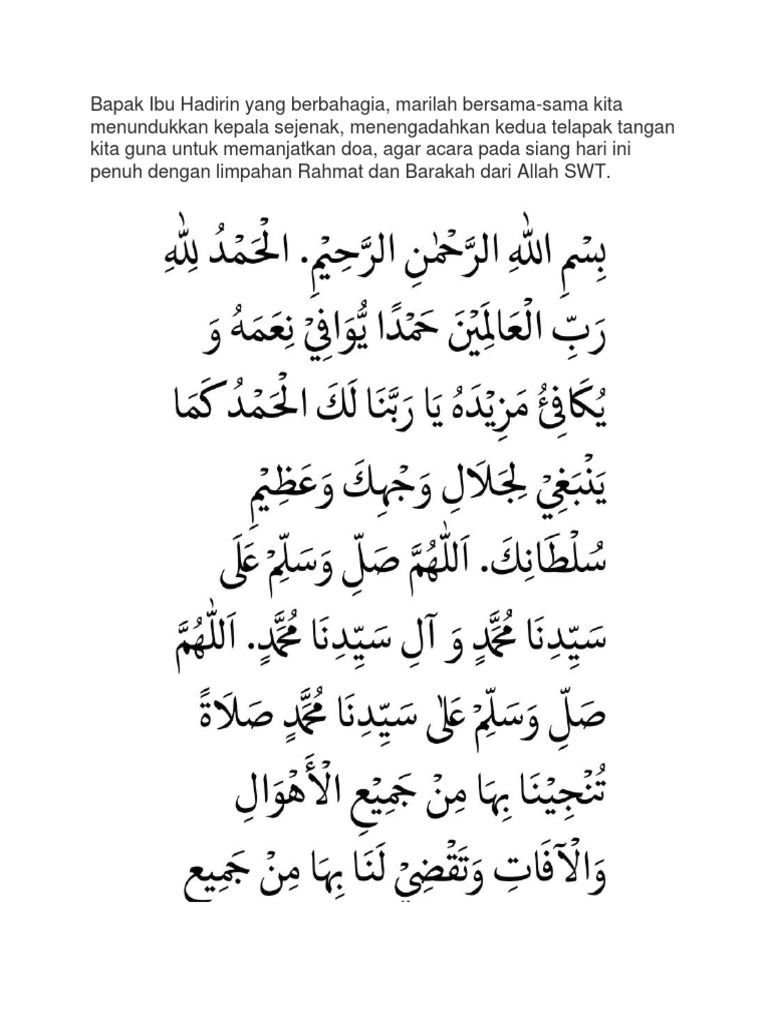 Bapak Ibu Hadirin yang berbahagia, marilah bersama-sama kita
menundukkan kepala sejenak, menengadahkan kedua telapak tangan
kita guna untuk memanjatkan doa, agar acara pada siang hari ini
penuh dengan limpahan Rahmat dan Barakah dari Allah SWT.
بِسْمِ اللهِ الرَّحْمٰنِ الرَّحِيْمِ. الْحَمْدُ لِلّٰهِ
رَبِّ الْعَالَمِيْنَ حَمْدًا يُّوَافِيْ نِعَمَهُ وَ
يُكَافِئُ مَزِيْدَهُ يَا رَبَّنَا لَكَ الْحَمْدُ كَمَا
يَنْبَغِيْ لِجَلَالِ وَجْهِكَ وَعَظِيْمِ
سُلْطَانِكَ. اَللّٰهُمَّ صَلِّ وَسَلِّمْ عَلَى
سَيِّدِنَا مُحَمَّدٍ وَ آلِ سَيِّدِنَا مُحَمَّدٍ. اَللّٰهُمَّ
صَلِّ وَسَلِّمْ عَلٰى سَيِّدِنَا مُحَمَّدٍ صَلَاةً
تُنْجِيْنَا بِهَا مِنْ جَمِيْعِ الْأَهْوَالِ
وَالْآفَاتِ وَتَقْضِيْ لَنَا بِهَا مِنْ جَمِيعِ